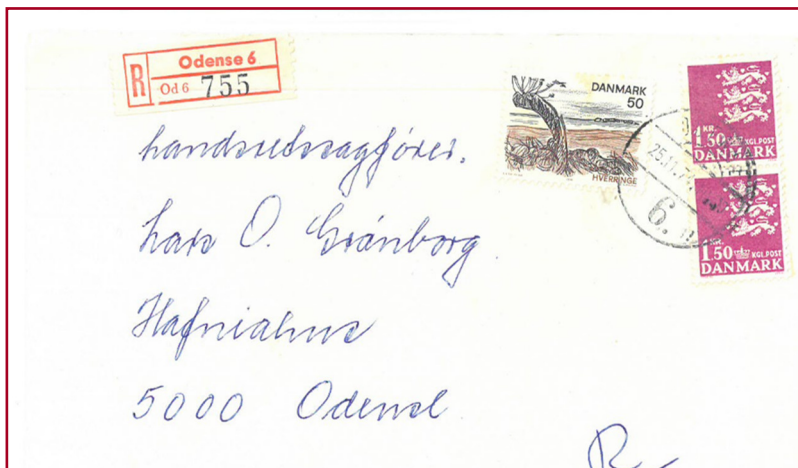 Odense 6
R Od 6 755
DANMARK
50
HVERRINGE
1 KR.
1.50 KGL.POST
DANMARK
1.50 KGL.POST
DANMARK
6.
landsretssagfører.
Lars O. Grönborg
Hafniahus
5000 Odense
R